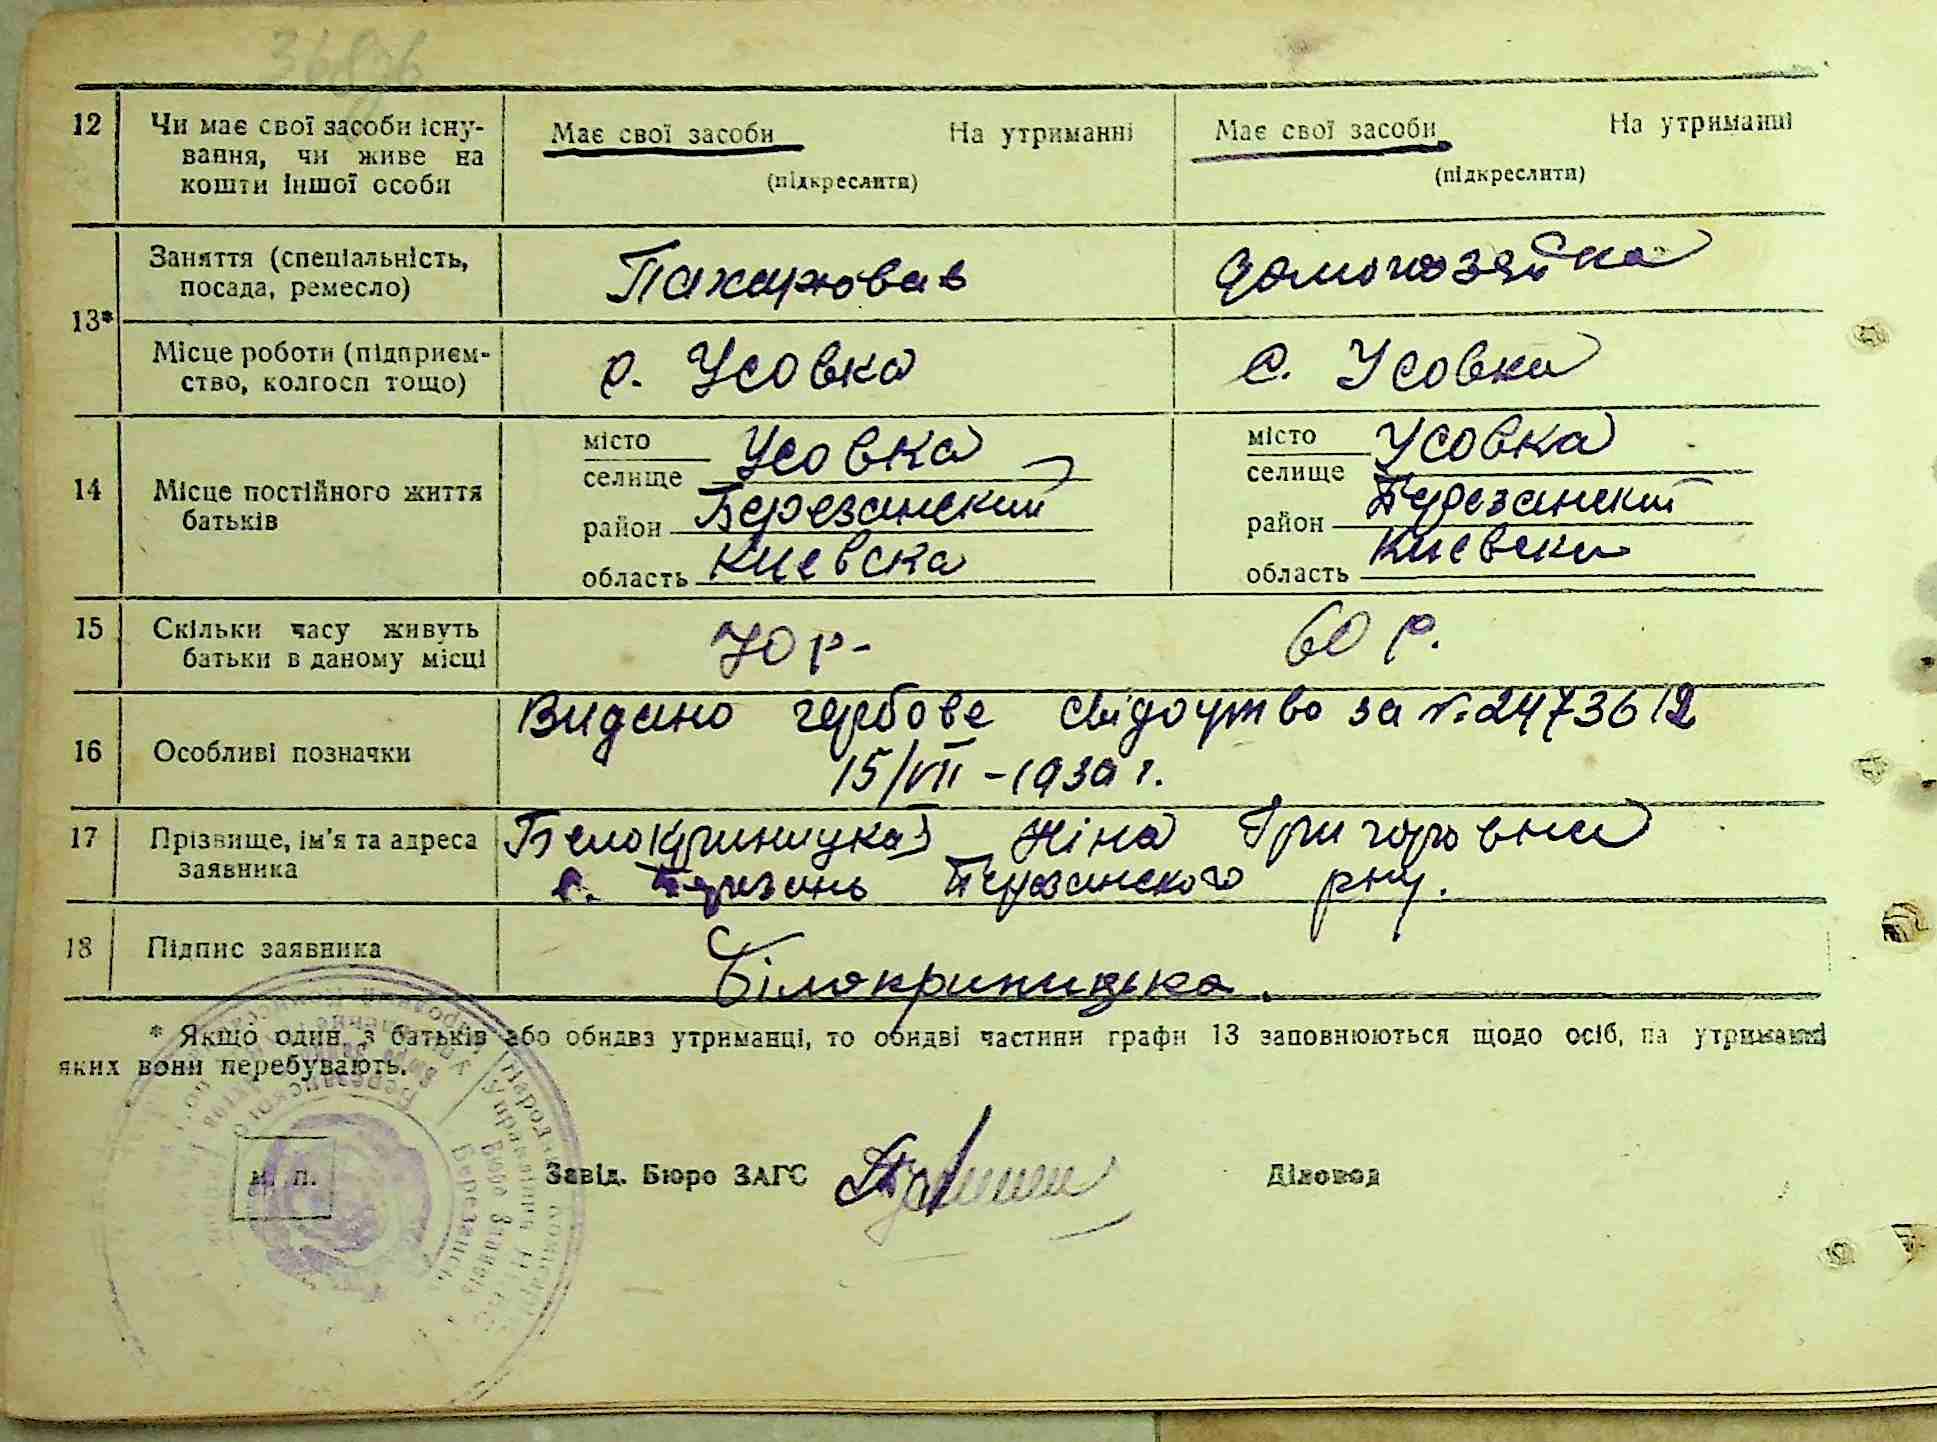 36876
12 Чи має свої засоби існу-
вання, чи живе на
кошти іншої особи
Має свої засоби На утриманні
(підкреслити)
Має свої засоби На утриманні
(підкреслити)
13*
Заняття (спеціальність,
посада, ремесло)
Пахарював
домохозяйка
Місце роботи (підприєм-
ство, колгосп тощо)
с. Усовка
с. Усовка
14 Місце постійного життя
батьків
місто
селище Усовка
район Березанский
область Киевска
місто
селище Усовка
район Березанский
область Киевска
15 Скільки часу живуть
батьки в даному місці
70 р-
60 р.
16 Особливі позначки
Видано гербове свідоцтво за №2473612
15/VII-1939 г.
17 Прізвище, ім'я та адреса
заявника
Белокриницкая Ніна Григоровна
с. Березань Березанского рну.
18 Підпис заявника
Білокриницька.
* Якщо один з батьків або обидва утриманці, то обидві частини графи 13 заповнюються щодо осіб, на утриманні
яких вони перебувають.
м. п.
Завід. Бюро ЗАГС
Діловод